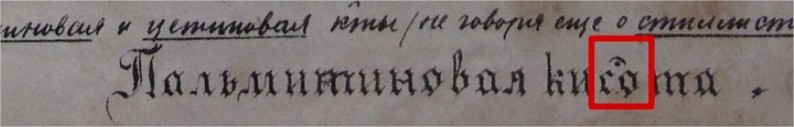 иновая и к̑ты (не говоря еще о стиллист
Пальмитиновая кисо̂та .